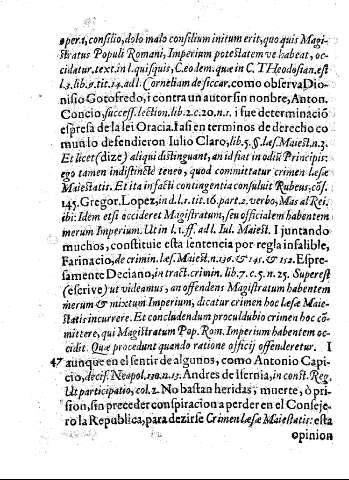 oper.ı, consilio, dolo malo consilium initum erit, quo quis Magi-
stratus Populi Romani, Imperium potestatem ve habeat, oc-
cidatur. text. in l. quisquis, C. eodem. quæ in C. THeodosian. est
l.3. lib.9. tit.14. ad l. Corneliam de siccar. como observa Dio-
nisio Gotofredo, i contra un autor sin nonbre, Anton.
Concio, success. lection. lib.2. c.20. n.1. i fue determinació
espresa de la lei Oracia. I asi en terminos de derecho co
mun lo defendieron Iulio Claro, lib.5. §. læs. Maiest. n.3.
Et licet (dize) aliqui distinguant, an id fiat in odiũ Principis:
ego tamen indistinctè teneo, quod committatur crimen læsæ
Maiestatis. Et ita in facti contingentia consuluit Rubeus, cõs.
145. Gregor. Lopez, in d.l.1. tit.16. part.2. verbo, Mas al Rei.
ibi: Idem etsi occideret Magistratum, seu officialem habentem
merum Imperium. Ut in l.1. ff. ad l. Iul. Maiest. I juntando
muchos, constituie esta sentencia por regla infalible,
Farinacio, de crimin. læs. Maiest. n.130. & 141. & 152. Espre-
samente Deciano, in tract. crimin. lib.7. c.5. n.25. Superest
(escrive) ut videamus, an offendens Magistratum habentem
merum & mixtum Imperium, dicatur crimen hoc læsæ Maie-
statis incurrere. Et concludendum proculdubio crimen hoc cõ-
mittere, qui Magistratum Pop. Rom. Imperium habentem oc-
cidit. Quæ procedunt quando ratione officij offenderetur. I
47 aunque en el sentir de algunos, como Antonio Capi-
cio, decis. Neapol.130. n.13. Andres de Isernia, in const. Reg.
Ut participatio, col.2. No bastan heridas, muerte, ò pri-
sion, sin preceder conspiracion a perder en el Conseje-
ro la Republica, para dezirse Crimen læsæ Maiestatis: esta
opinion